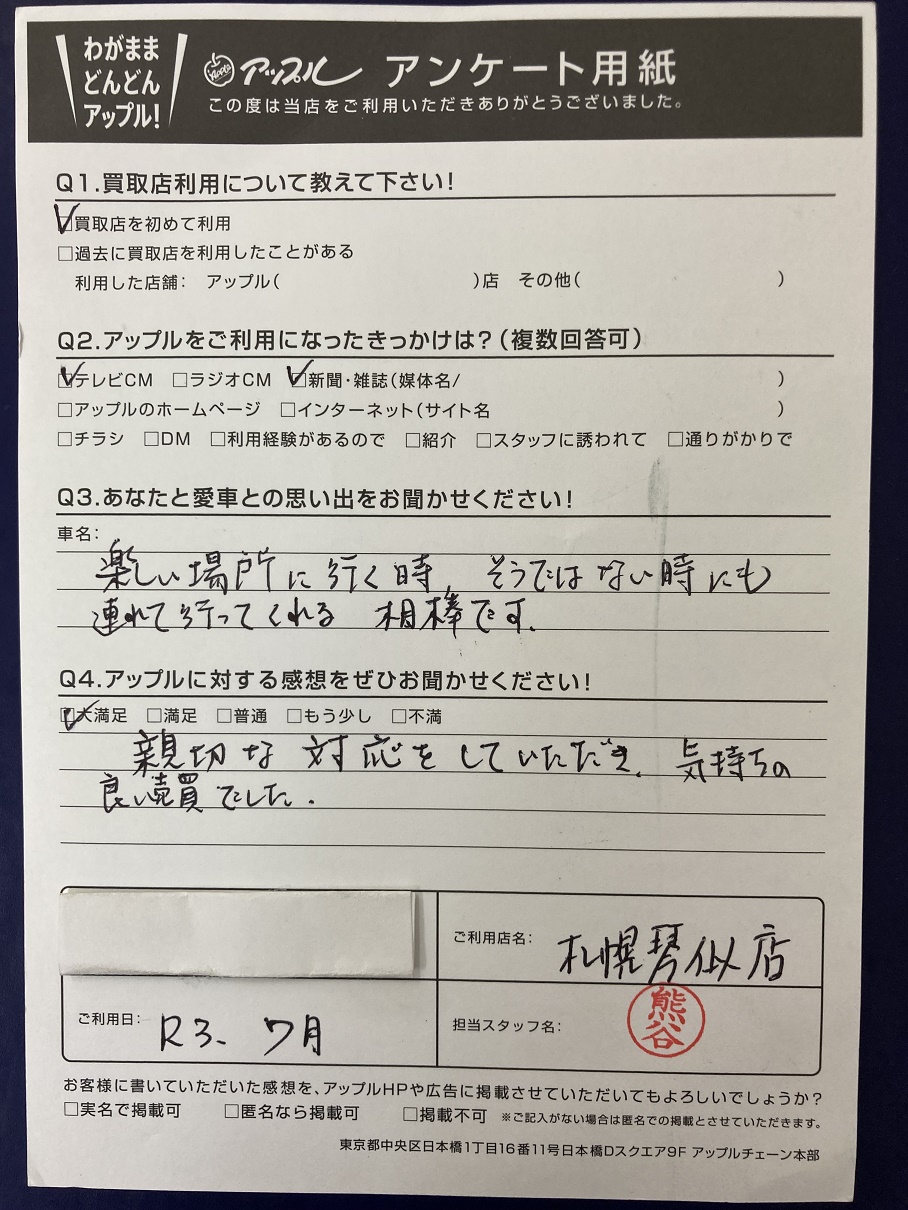 わがまま
どんどん
アップル!
Apple アップル アンケート用紙
この度は当店をご利用いただきありがとうございました。
Q1.買取店利用について教えて下さい!
☑買取店を初めて利用
□過去に買取店を利用したことがある
利用した店舗: アップル( )店 その他( )
Q2.アップルをご利用になったきっかけは?(複数回答可)
☑テレビCM □ラジオCM ☑新聞・雑誌(媒体名/ )
□アップルのホームページ □インターネット(サイト名 )
□チラシ □DM □利用経験があるので □紹介 □スタッフに誘われて □通りがかりで
Q3.あなたと愛車との思い出をお聞かせください!
車名:
楽しい場所に行く時、そうではない時にも
連れて行ってくれる 相棒です。
Q4.アップルに対する感想をぜひお聞かせください!
☑大満足 □満足 □普通 □もう少し □不満
親切な対応をしていただき、気持ちの
良い売買でした.
ご利用店名: 札幌琴似店
ご利用日: R3. 7月
担当スタッフ名: 熊谷
お客様に書いていただいた感想を、アップルHPや広告に掲載させていただいてもよろしいでしょうか?
□実名で掲載可 □匿名なら掲載可 □掲載不可 ※ご記入がない場合は匿名での掲載とさせていただきます。
東京都中央区日本橋1丁目16番11号日本橋Dスクエア9F アップルチェーン本部